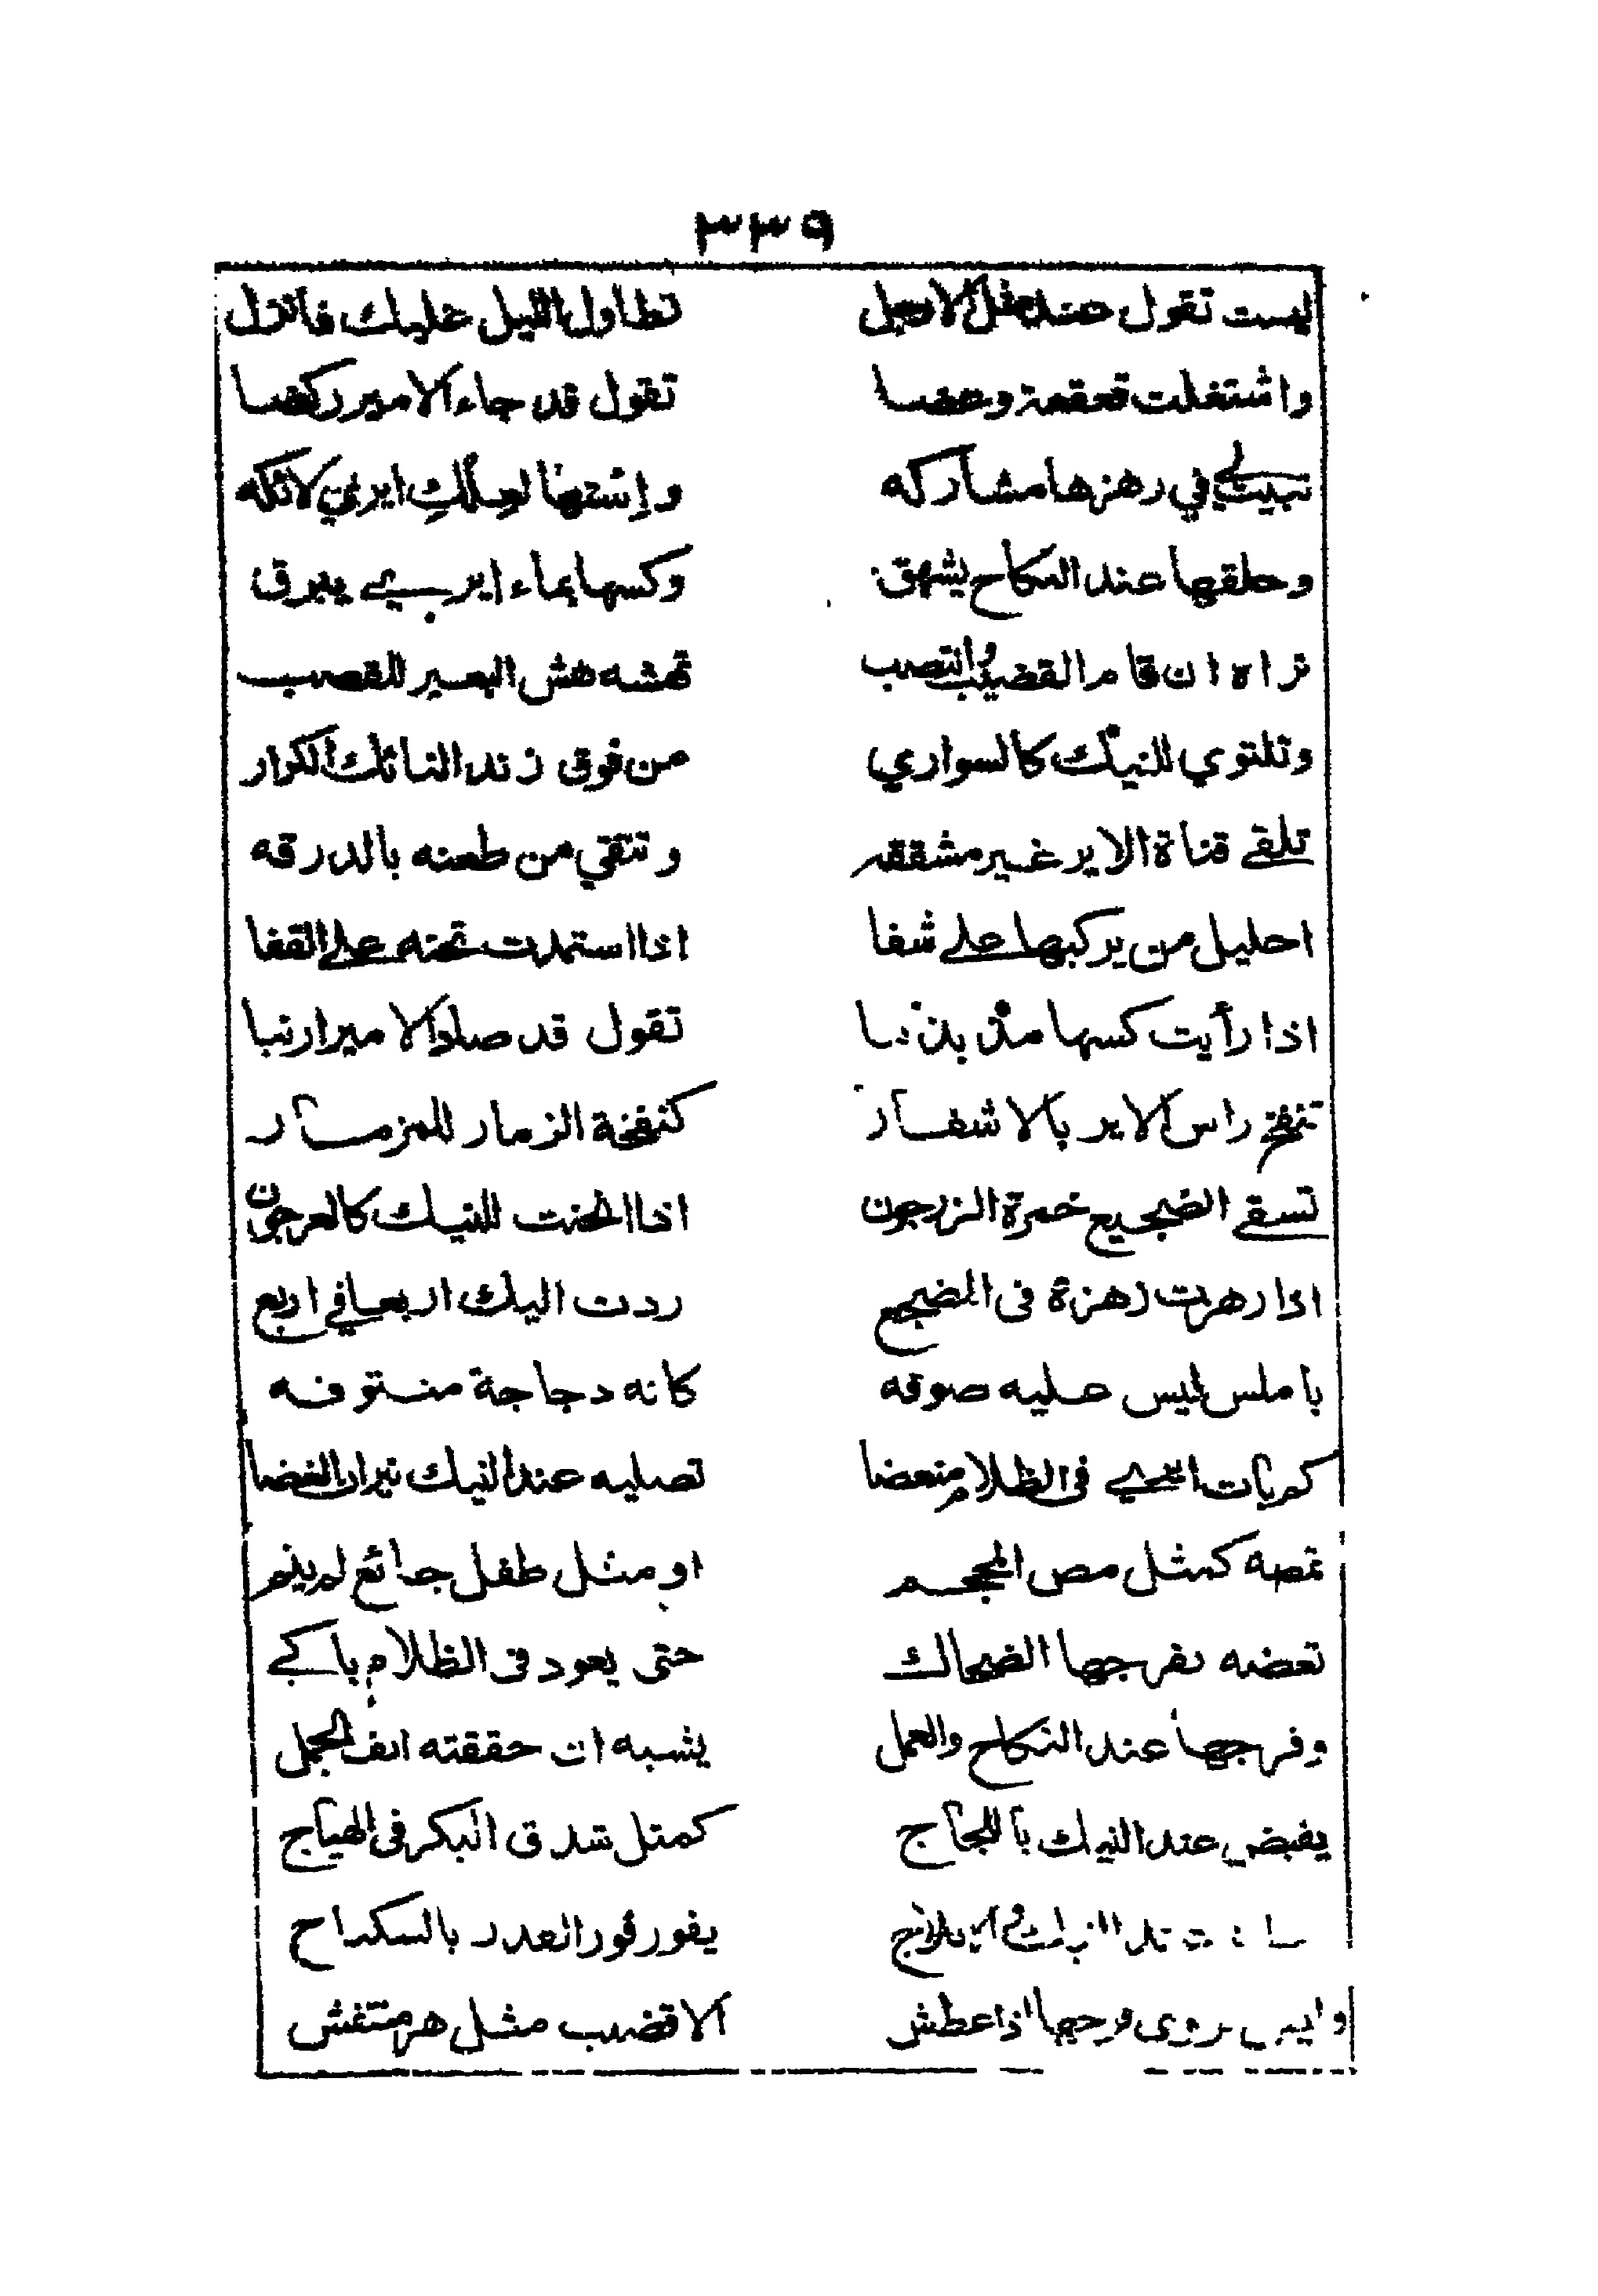 ٣٣٩
ليست تقول عند مثل الارجل تطاول الليل عليك فانزل
واشتغلت قعقعة وعضا تقول قد جاء الامير ركضا
تبيت لي في رهزها مشاركه واشتهالعلك ايري لائكه
وحلقها عند النكاح يشهق وكسها بماء ايري يبرق
تراه ان قام القضيب وانتصب تهشه هش البعير للقصب
وتلتوي للنيك كالسواري من فوق زند النائك الكرار
تلقى قناة الاير غير مشفقه وتتقي من طعنه بالدرقه
احليل من يركبها على شفا اذا استمدت تحته على القفا
اذا رأيت كسها مذبذبا تقول قد صاد الامير ارنبا
تنفخ راس الاير بالاشفار كنفخة الزمار للمزمار
تسقى الضجيع خمرة الزرجون اذا انحنت للنيك كالعرجون
اذا رهزت رهزة في المضجع ردت اليك اربعا في اربع
باملس ليس عليه صوفه كانه دجاجة منتوفه
كم بات ايري في الظلام منعضا تصليه عند النيك نيران الغضا
تمصه كمثل مص المحجم او مثل طفل جائع لم ينم
تعضه بفرجها الضحاك حتى يعود في الظلام باكي
وفرجها عند النكاح والعمل يشبه ان حققته انف الجمل
يقبض عند النيك باللجاج كمثل شدق البكر في الهياج
النيك والايلاج يفور فور القدر بالسكباج
وليس يروى فرجها اذا عطش الا قضيب مثل هر منتفش